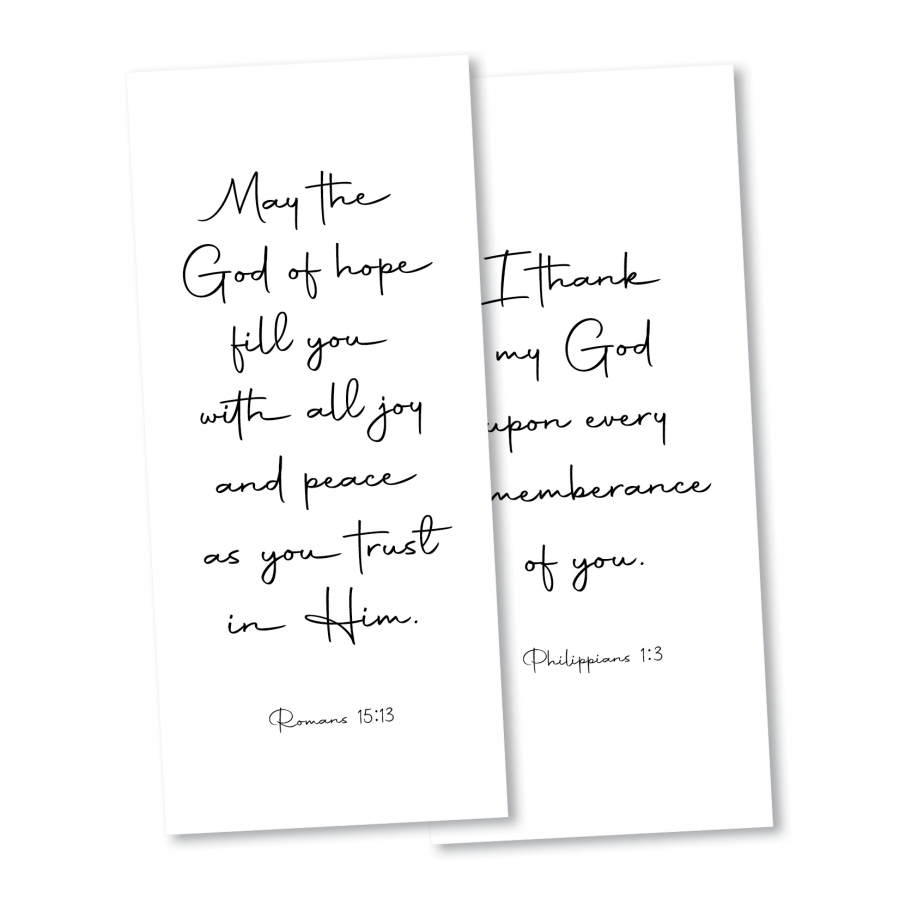 May the
God of hope
fill you
with all joy
and peace
as you trust
in Him.
Romans 15:13
I thank
my God
upon every
memberance
of you.
Philippians 1:3